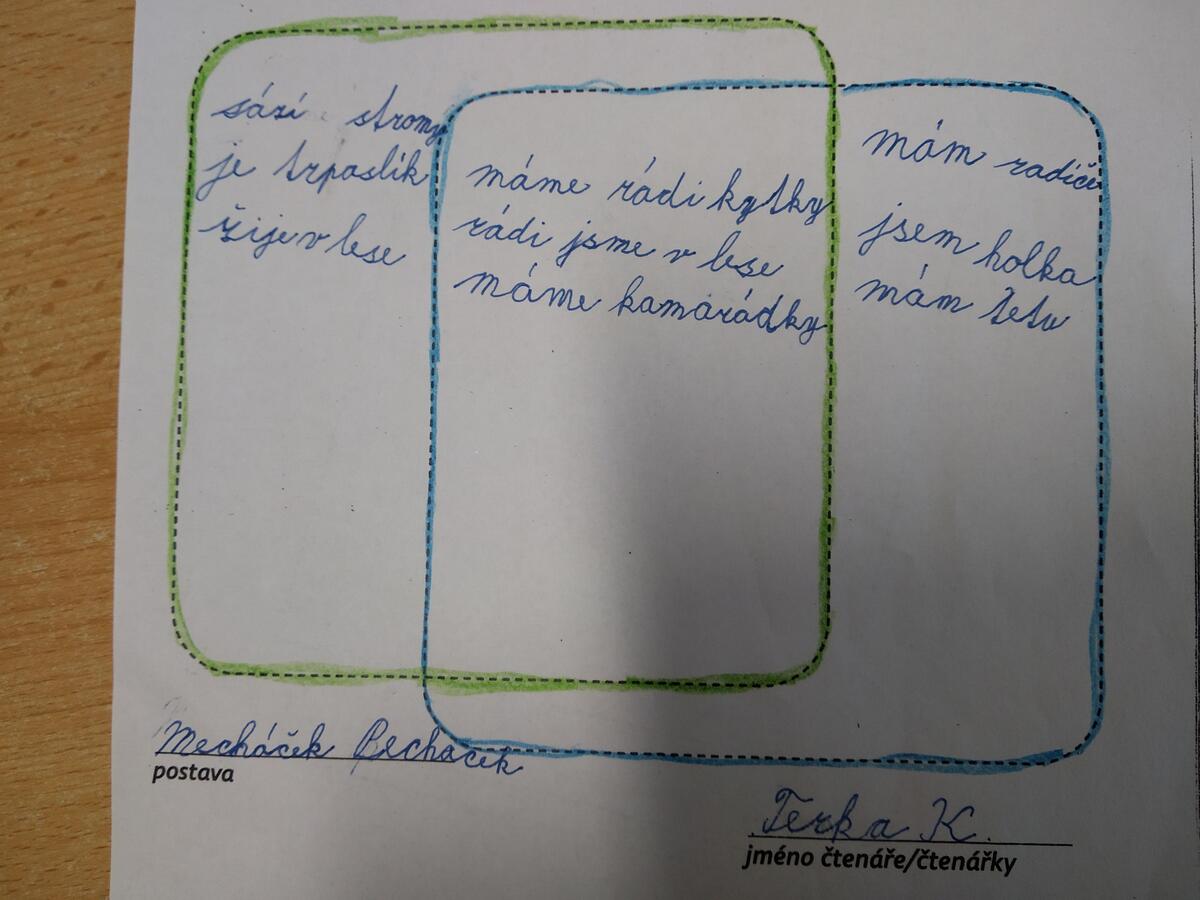 sází stromy
je trpaslík
žije v lese
máme rádi kytky
rádi jsme v lese
máme kamarádky
mám radiči
jsem holka
mám tetu
Mecháček Pecháček
postava
Terka K.
jméno čtenáře/čtenářky